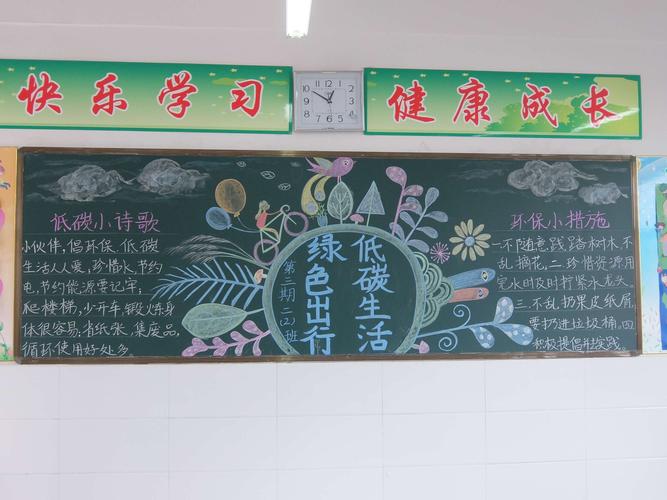 快乐学习
健康成长
低碳小诗歌
小伙伴,倡环保,低碳
生活人人爱,珍惜水,节约
电,节约能源要记牢;
爬楼梯,少开车,锻炼身
体很容易,省纸张,集废品,
循环使用好处多。
低碳生活
绿色出行
第三期 二(2)班
环保小措施
一.不随意践踏树木,不
乱摘花,二.珍惜资源用
完水时及时拧紧水龙头,
三.不乱扔果皮纸屑,
要扔进垃圾桶,四
积极提倡并实践。